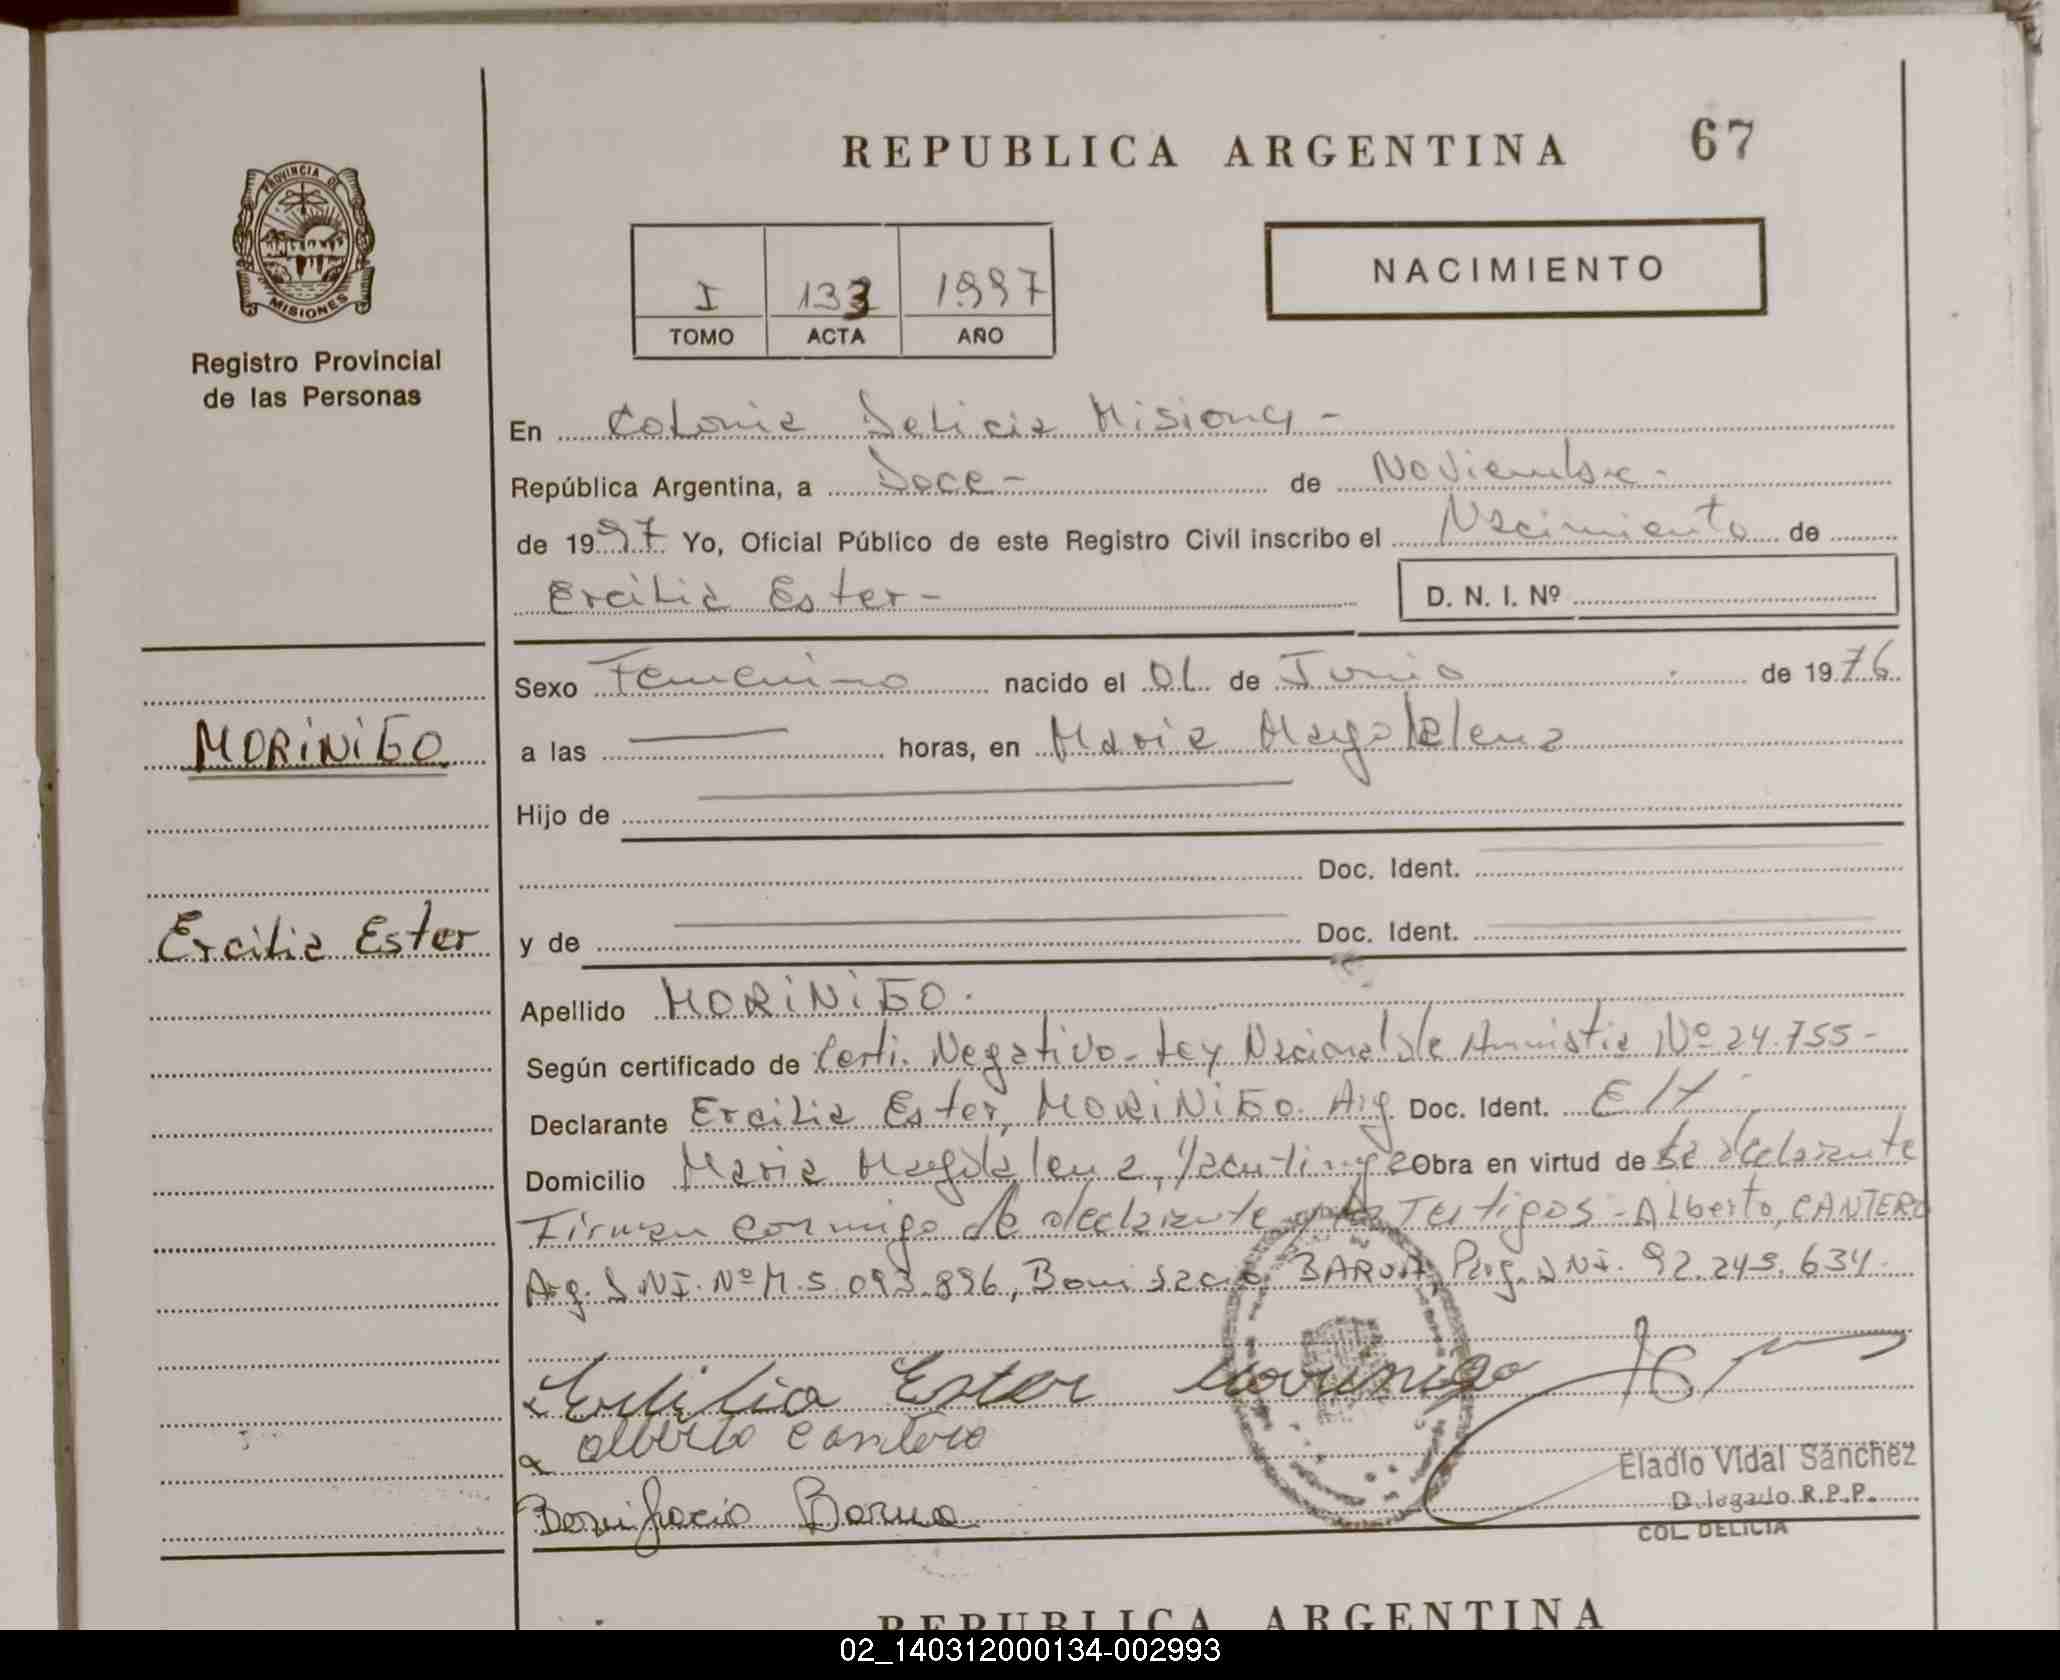 REPUBLICA ARGENTINA 67
PROVINCIA DE
MISIONES
Registro Provincial
de las Personas
I 133 1997
TOMO ACTA AÑO
NACIMIENTO
En Colonia Delicia Misiones -
República Argentina, a Doce - de Noviembre.
de 1997 Yo, Oficial Público de este Registro Civil inscribo el Nacimiento de
Ercilia Ester - D. N. I. Nº
Sexo Femenino nacido el 01 de Junio de 1976
MORiNiGO
a las horas, en Maria Magdalena
Hijo de
Doc. Ident.
Ercilia Ester
y de Doc. Ident.
Apellido MORiNiGO.
Según certificado de Certi. Negativo - Ley Nacional de Amnistia Nº 24.755 -
Declarante Ercilia Ester, MORiNiGO. Arg. Doc. Ident. E/T
Domicilio Maria Magdalena, Obra en virtud de La declarante
Firman conmigo la declarante y los Testigos - Alberto, CANTERO
Arg. DNI. Nº M.5.093.896, Bonifacio BARUA, Parg. DNI. 92.245.634.
Ercilia Ester Morinigo
Alberto Cantero
Bonifacio Barua
Eladio Vidal Sánchez
Delegado R.P.P.
COL. DELICIA
REPUBLICA ARGENTINA
02_140312000134-002993